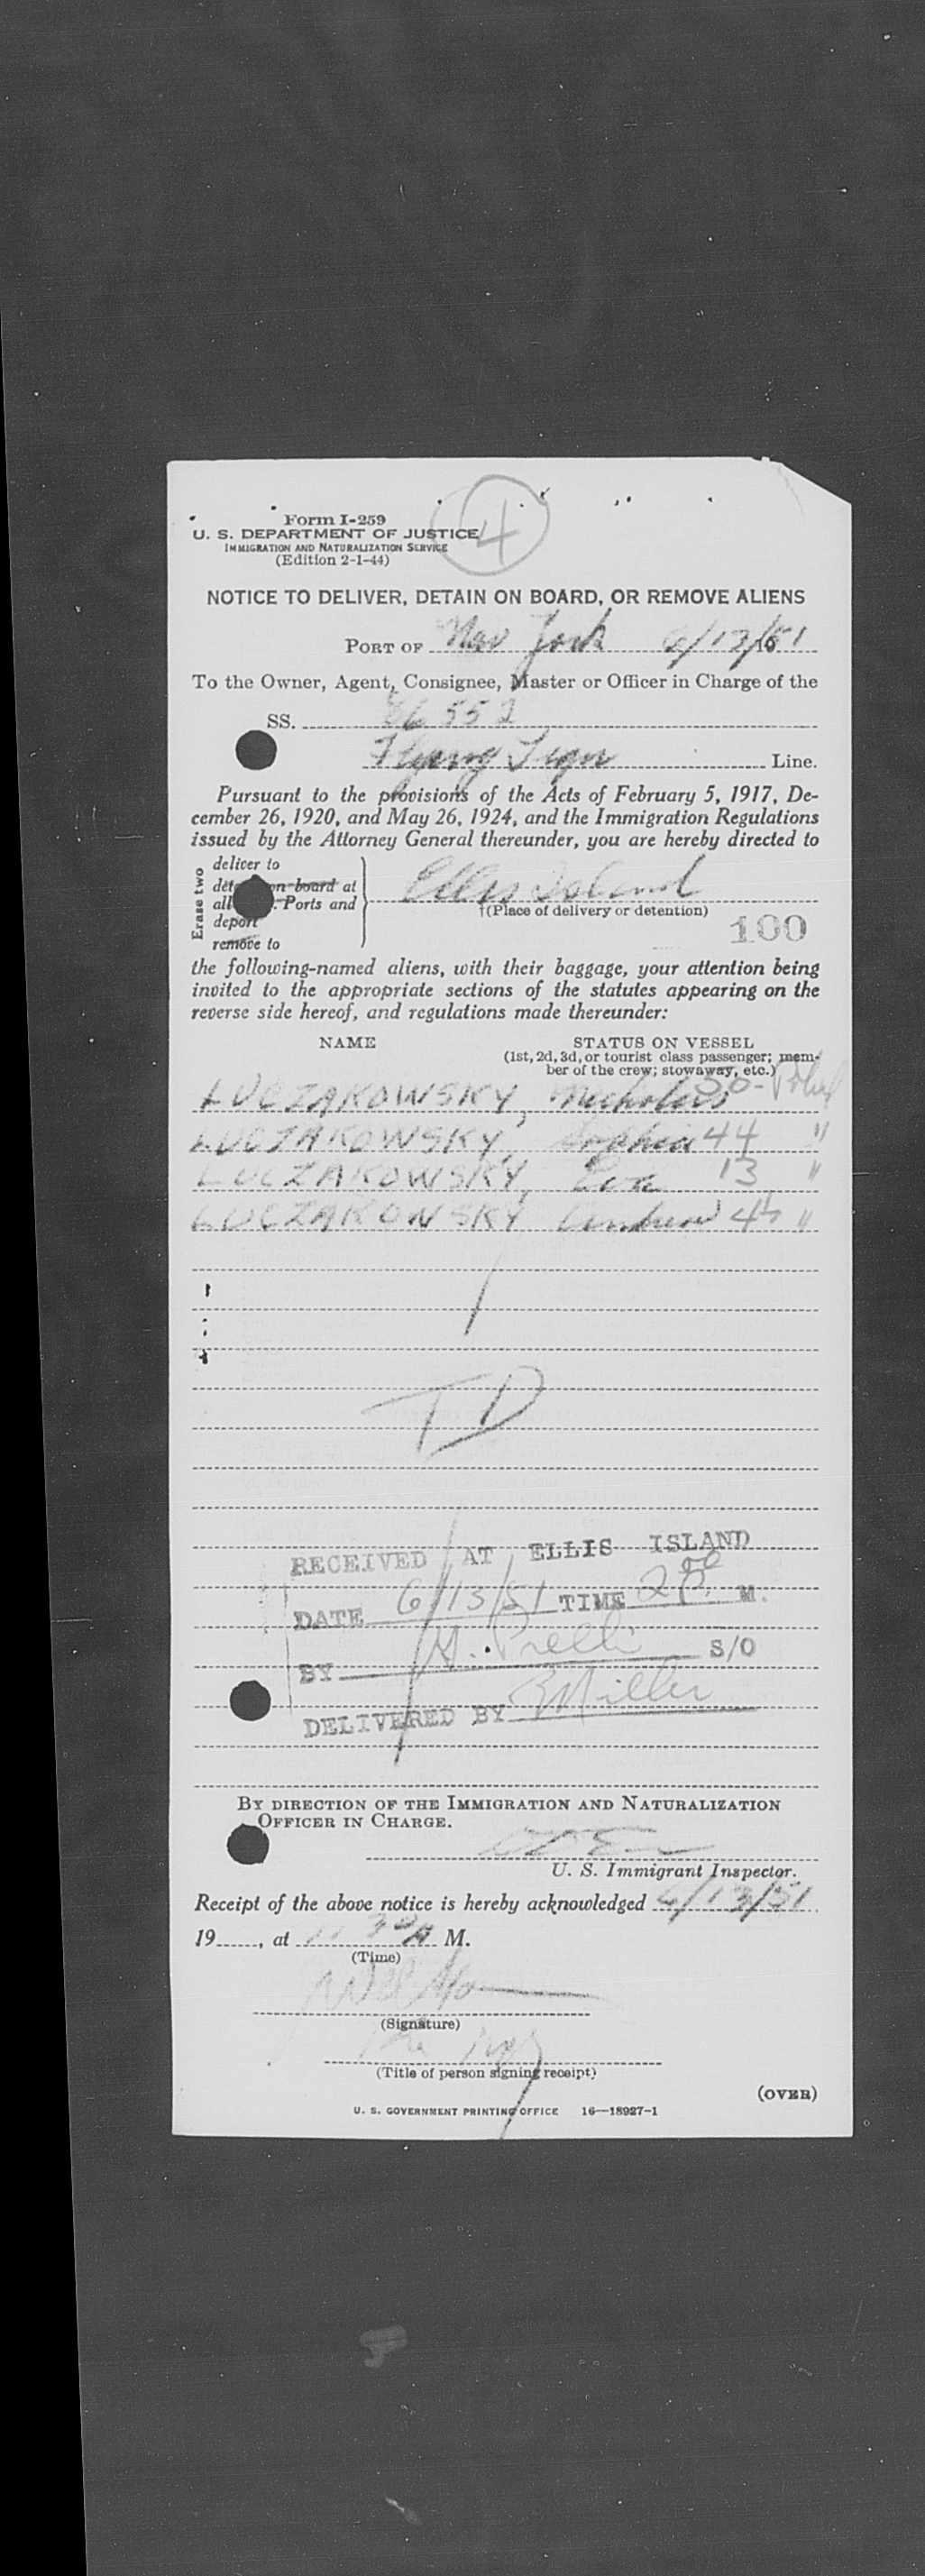 4
Form I-259
U. S. DEPARTMENT OF JUSTICE
IMMIGRATION AND NATURALIZATION SERVICE
(Edition 2-1-44)
NOTICE TO DELIVER, DETAIN ON BOARD, OR REMOVE ALIENS
PORT OF New York 6/13/51
To the Owner, Agent, Consignee, Master or Officer in Charge of the
SS. 86552
Flying Tiger Line.
Pursuant to the provisions of the Acts of February 5, 1917, De-
cember 26, 1920, and May 26, 1924, and the Immigration Regulations
issued by the Attorney General thereunder, you are hereby directed to
Erase two
deliver to
on board at
all Ports and
deport
remove to
Ellis Island
†(Place of delivery or detention)
100
the following-named aliens, with their baggage, your attention being
invited to the appropriate sections of the statutes appearing on the
reverse side hereof, and regulations made thereunder:
NAME STATUS ON VESSEL
(1st, 2d, 3d, or tourist class passenger; mem-
ber of the crew; stowaway, etc.)
LUCZAKOWSKY, Nicholas 50-
LUCZAKOWSKY, Sophia 44 "
LUCZAKOWSKY, Eva 13 "
LUCZAKOWSKY Andrew 4½ "
TD
RECEIVED AT ELLIS ISLAND
DATE 6/13/51 TIME 2 M.
BY S/O
DELIVERED BY Miller
BY DIRECTION OF THE IMMIGRATION AND NATURALIZATION
OFFICER IN CHARGE.
U. S. Immigrant Inspector.
Receipt of the above notice is hereby acknowledged 6/13/51
19____, at 11 30 A M.
(Time)
(Signature)
(Title of person signing receipt)
(OVER)
U. S. GOVERNMENT PRINTING OFFICE 16—18927-1